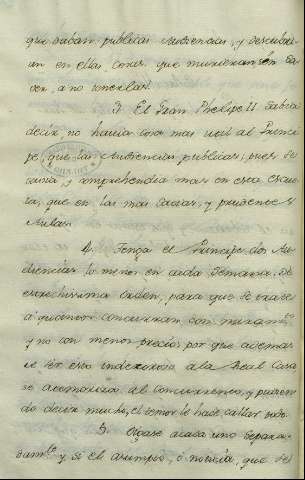 que daban publicas Audiencias, y descubri-
an en ellas, cosas, que murieran sin sa-
ver, a no tenerlas.
3. El Gran Phelipe II. sabia
decir, no havia cosa mas util al Princi-
pe, que las Audiencias publicas; pues se
savia, y comprehendia mas en esta escue-
la, que en las mas sabias, y prudentes
Aulas.
4. Tenga el Principe dos Au-
diencias lo menos en cada semana: de
estrechisima orden, para que se trate
a quantos concurran, con miram.to
y no con menos precio; por que ademas
de ser esto indecoroso a la Real Casa
se atemoriza al concurrente, y pudien-
do decir mucho, el temor le hace callar todo.
5. Oygase a cada uno separa-
dam.te y si el asumpto, ó noticia, que dé